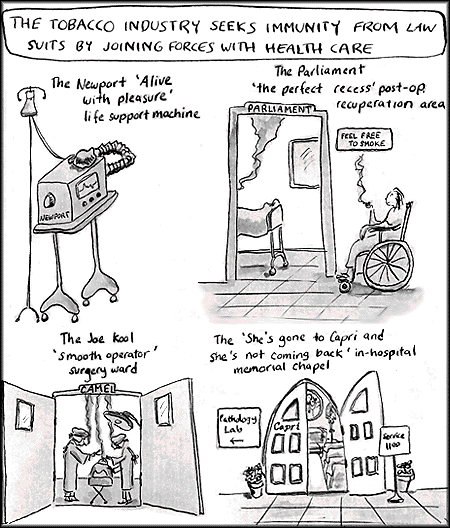 THE TOBACCO INDUSTRY SEEKS IMMUNITY FROM LAW
SUITS BY JOINING FORCES WITH HEALTH CARE
The Newport 'Alive
with pleasure'
life support machine
NEWPORT
The Parliament
'the perfect recess' post-op.
recuperation area
PARLIAMENT
FEEL FREE
TO SMOKE
The Joe Kool
'smooth operator'
surgery ward
CAMEL
The 'She's gone to Capri and
she's not coming back' in-hospital
memorial chapel
Pathology
Lab
←
Capri
Service
1100